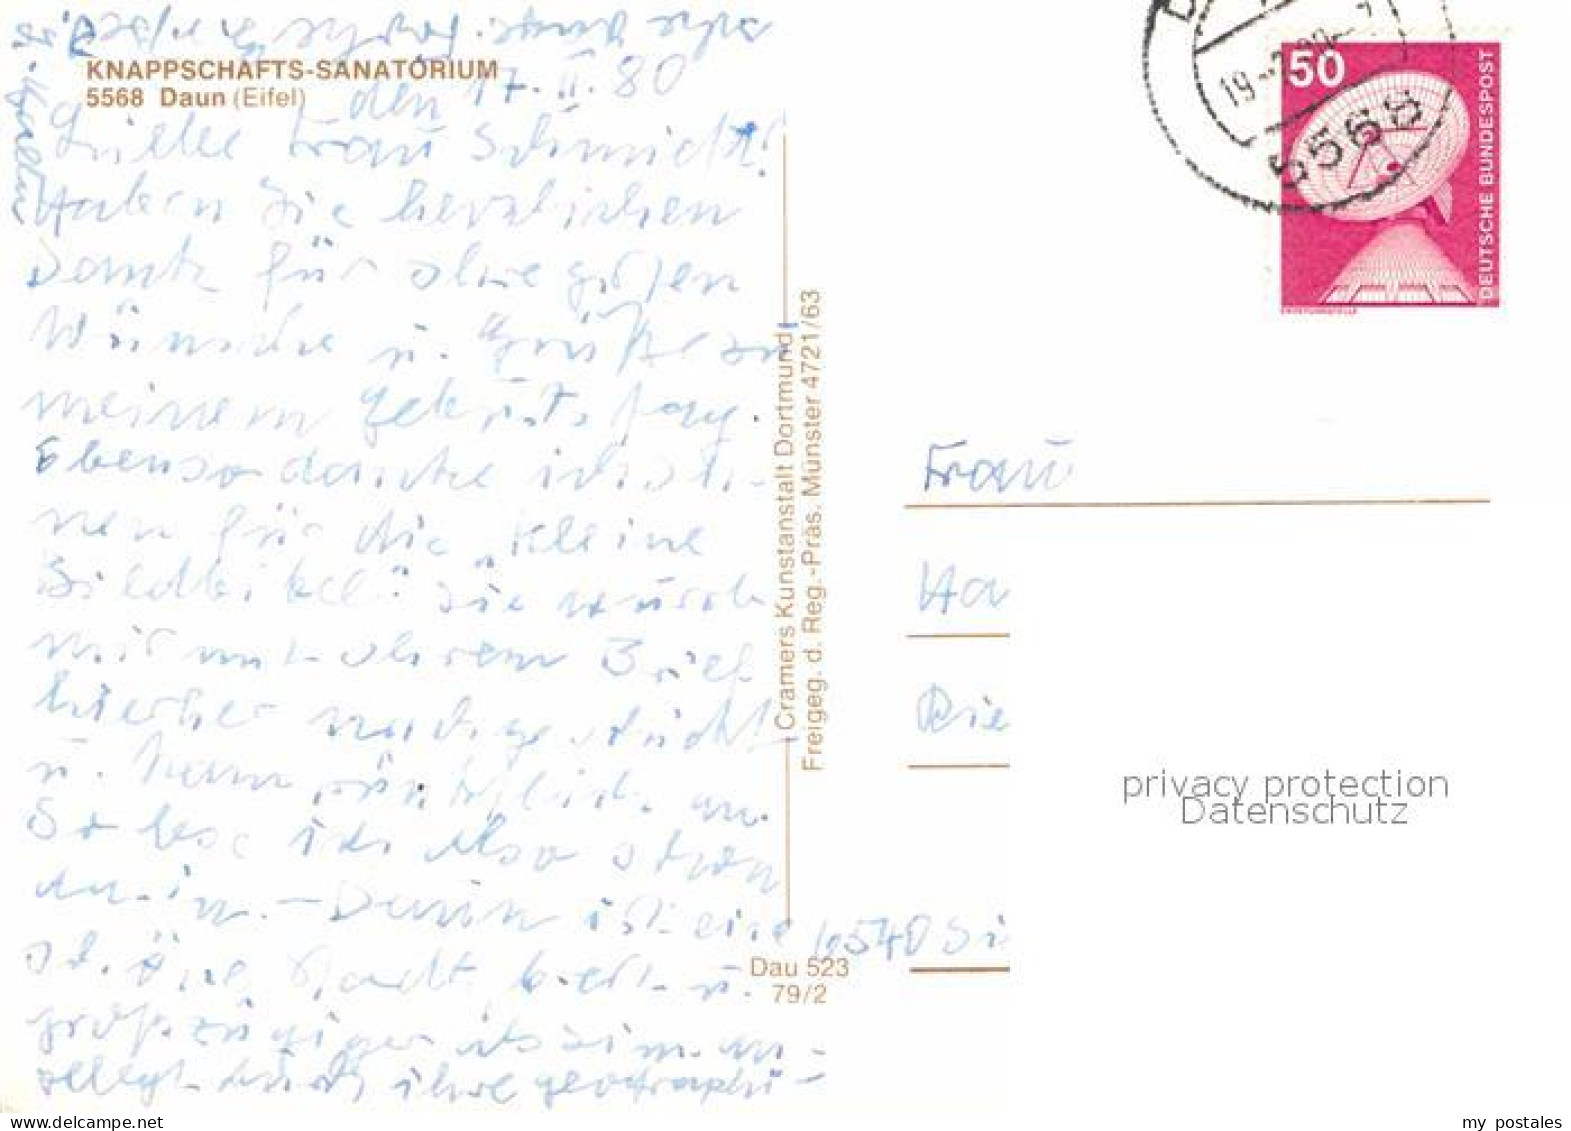 KNAPPSCHAFTS-SANATORIUM
5568 Daun (Eifel)
den 17. II. 80
Frau Schmidt!
Haben Sie herzlichen
Dank für
Wünsche u. Grüße zu
meinem Geburtstag.
Ebenso danke ich Ih-
nen für die "kleine
Bildbibel". Sie wurde
mir mit Ihrem Brief
hierher nachgeschickt
u. kam pünktlich an.
So lese ich also schon
darin. – Daun ist eine
Stadt
großzügiger
durch ihre geographi-
Cramers Kunstanstalt Dortmund
Freigeg. d. Reg.-Präs. Münster 4721/63
Dau 523
79/2
5568
50
DEUTSCHE BUNDESPOST
Frau
Ha
Rie
6540 Si
privacy protection
Datenschutz
my postales